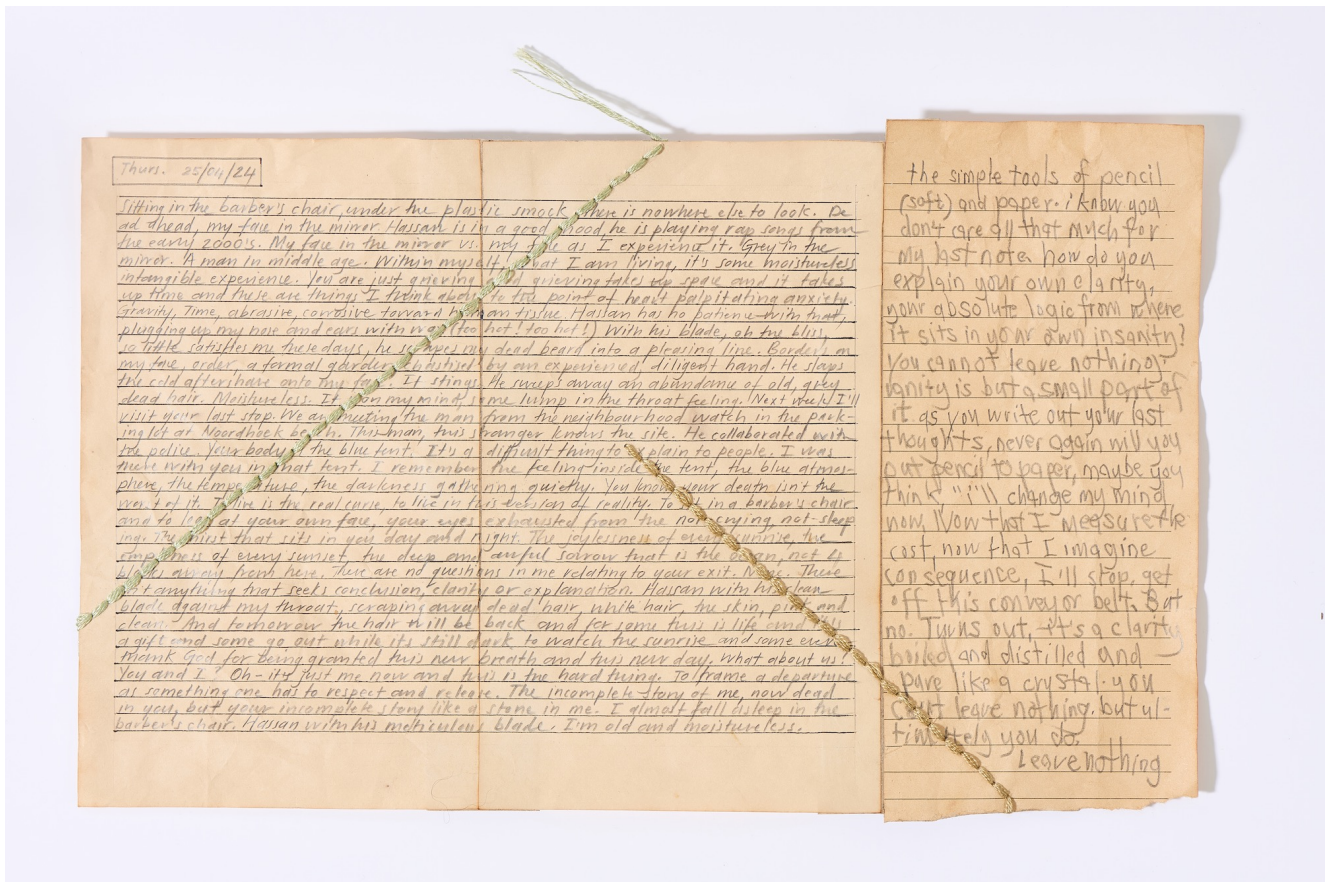 Thurs. 25/04/24
Sitting in the barber's chair, under the plastic smock, there is nowhere else to look. De
ad ahead, my face in the mirror. Hassan is in a good mood, he is playing rap songs from
the early 2000's. My face in the mirror vs. my face as I experience it. Grey in the
mirror. A man in middle age. Within myself, what I am living, it's some moistureless
intangible experience. You are just grieving and grieving takes up space and it takes
up time and these are things I think about to the point of heart palpitating anxiety.
Gravity, Time, abrasive, corrosive toward human tissue. Hassan has no patience with that,
plugging up my nose and ears with wax (too hot! too hot!) With his blade, oh the bliss,
so little satisfies me these days, he scrapes my dead beard into a pleasing line. Borders on
my face, order, a formal garden by an experienced, diligent hand. He slaps
the cold aftershave onto my face. It stings. He sweeps away an abundance of old, grey
dead hair. Moistureless. It on my mind, some lump in the throat feeling. Next week I'll
visit your last stop. We are meeting the man from the neighbourhood watch in the park-
ing lot at Noordhoek beach. This man, this stranger knows the site. He collaborated with
the police. Your body in the blue tent. It's a difficult thing to explain to people. I was
there with you in that tent. I remember the feeling inside the tent, the blue atmos-
phere, the temperature, the darkness gathering quietly. You know your death isn't the
worst of it. To live is the real curse, to live in this version of reality. To sit in a barber's chair
and to look at your own face, your eyes exhausted from the not-crying, not-sleep
ing. The thirst that sits in you day and night. The joylessness of every sunrise, the
emptiness of every sunset, the deep and awful sorrow that is the ocean, not 6
blocks away from here. There are no questions in me relating to your exit. None. There
isn't anything that seeks conclusion, clarity or explanation. Hassan with his clean
blade against my throat, scraping away dead hair, white hair, the skin, pink and
clean. And tomorrow the hair will be back and for some this is life and it's
a gift and some go out while its still dark to watch the sunrise and some even
thank God for being granted this new breath and this new day. What about us?
You and I? Oh - it's just me now and this is the hard thing. To frame a departure
as something one has to respect and release. The incomplete story of me, now dead
in you, but your incomplete story like a stone in me. I almost fall asleep in the
barber's chair. Hassan with his meticulous blade. I'm old and moistureless.
the simple tools of pencil
(soft) and paper. i know you
don't care all that much for
my last note. how do you
explain your own clarity,
your absolute logic from where
it sits in your own insanity?
You cannot leave nothing.
vanity is but a small part of
it. as you write out your last
thoughts, never again will you
put pencil to paper, maybe you
think "i'll change my mind
now, Now that I measure the
cost, now that I imagine
consequence, I'll stop, get
off this conveyor belt. But
no. Turns out, it's a clarity
boiled and distilled and
pure like a crystal. you
can't leave nothing. but ul-
timately you do.
Leave nothing